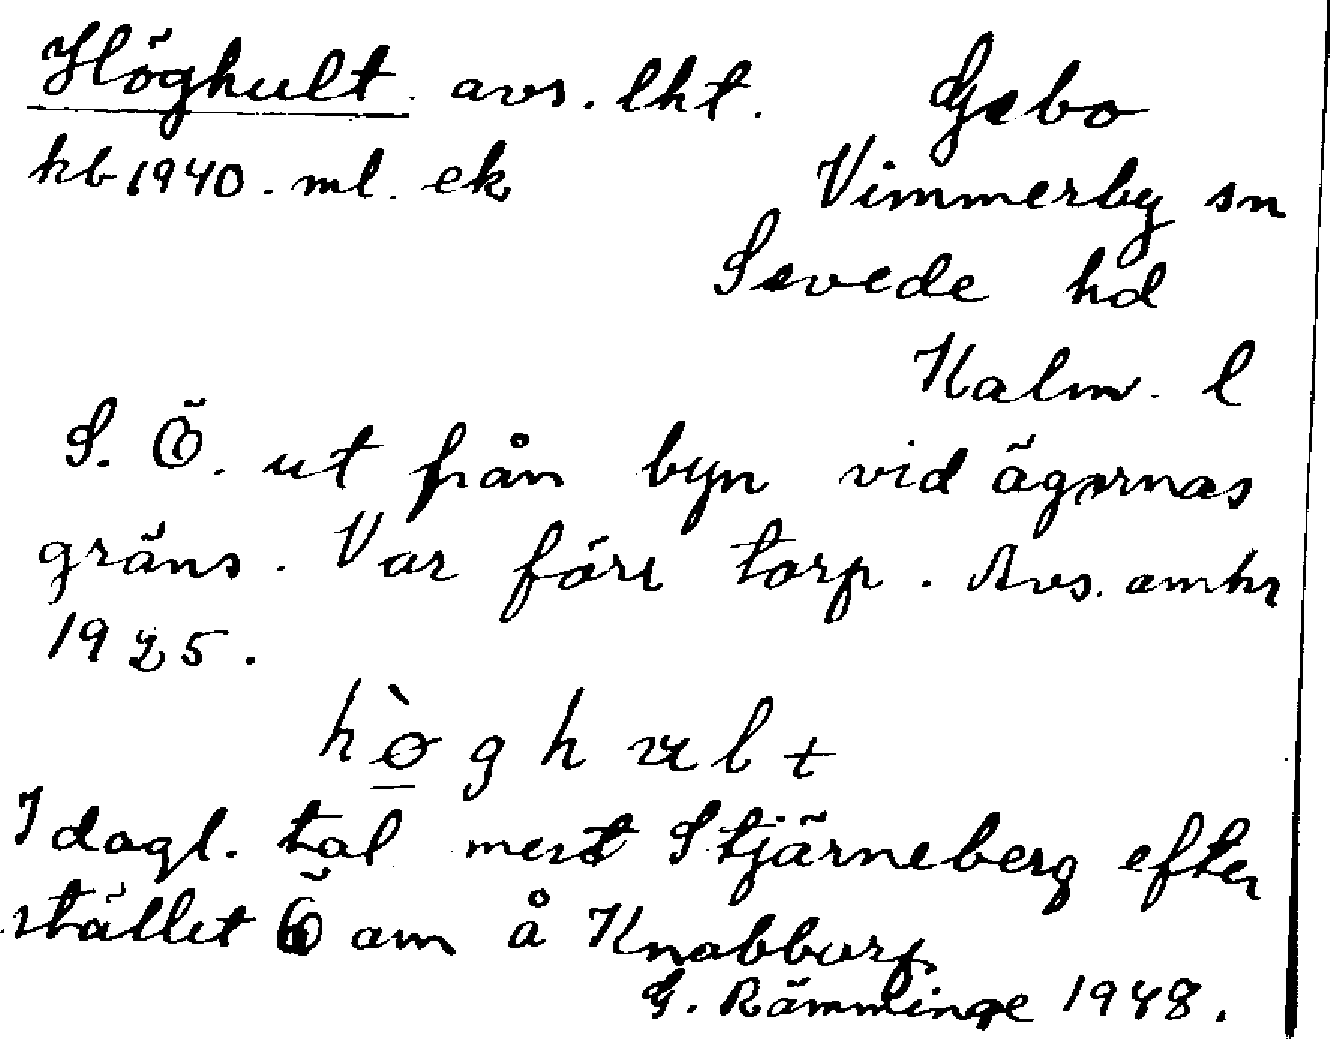 Höghult avs. lht. Gebo
kb 1940. ml. ek Vimmerby sn
Sevede hd
Kalm. l
S. Ö. ut från byn vid ägornas
gräns. Var förr torp. Avs. omkr
1925.
hò̲ghult
I dagl. tal mest Stjärneberg efter
stället Ö om å Knabbarp
G. Rämminge 1948.